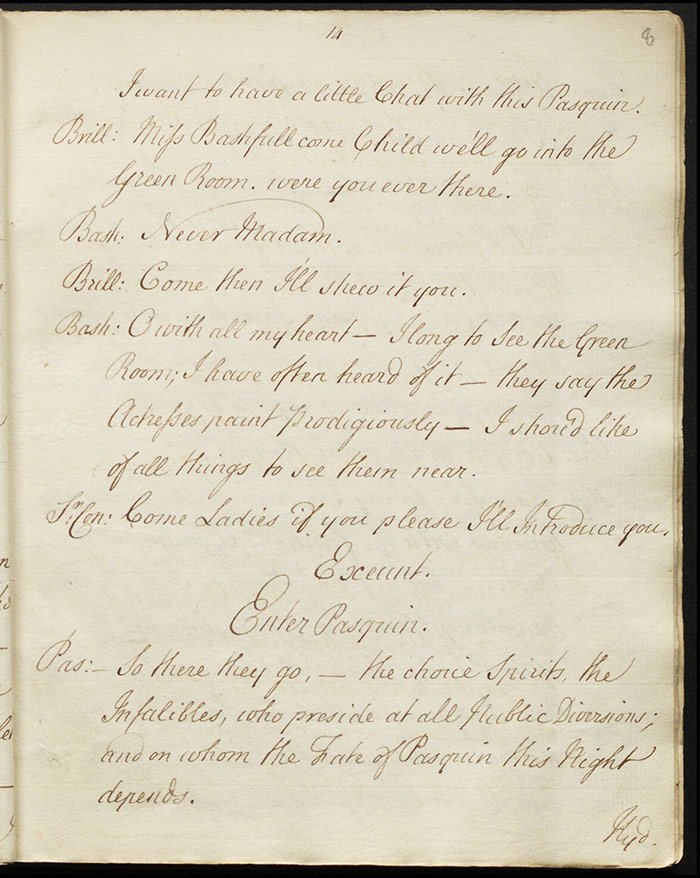 14
8
I want to have a little Chat with this Pasquin.
Brill: Miſs Bashfull come Child we'll go into the
Green Room. were you ever there.
Bash: Never Madam.
Brill: Come then I'll shew it you.
Bash: O with all my heart — I long to see the Green
Room; I have often heard of it — they say the
Actreſses paint prodigiously — I shou'd like
of all things to see them near.
Sr. Con: Come Ladies if you please I'll Introduce you.
Exeunt.
Enter Pasquin.
Pas:— So there they go, — the choice Spirits, the
Infalibles, who preside at all Public Diversions;
and on whom the Fate of Pasquin this Night
depends.
Hyd.